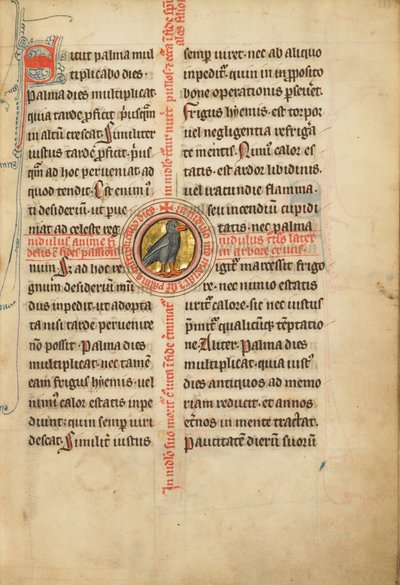 Sicut palma mul
tiplicabo dies.
Palma dies multiplicat
quia tarde p̄ficit. p̄usqm̄
in altū crescat. Similiter
iustus tarde p̄ficit. p̄us
qm̄ ad hoc perueniat ad
quod tendit. Est enim ı
ti desiderium. ut pue
niat ad celeste reg
nidulus anime fi
delis ē fides passioni
num. ad hoc re
gnum desiderium mū
dus inpedit. ut adopta
ta nisi tarde peruenire
nō possit. Palma dies
multiplicat. nec tamen
eam frigus hyemis. uel
nimiꝰ calor estatis inpe
diunt. quin semp uiri
descat. Similiť iustus
semp uiret. nec ab aliquo
inpeditͬ. quin in p̄posito
bone operationis pseuet.
Frigus hyemis. est torpor
uel negligentia refrigͣ
te mentis. Nimiꝰ calor es
tatis. est ardor libidinis.
uel iracundie flamma.
seu incendiū cupidi
tatis. nec palma
nidulus latet
in arbore crucis.
igiť marcessit frigo
re. nec nimio estatis
uritͬ calore. sic nec iustus
p̄mitͬ qualicunꝙ temptatio
ne. Aliter. Palma dies
multiplicat. quia iustꝰ
dies antiquos ad memo
riam reducit. et annos
et̄nos in mente tractat.
Paucitatem dierū suorū
In nidlo nutͭ pullos. ecc̄ia ī fide spū
ales filios
✠ in nidulo meo moriar et sicut palma multiplicabo dies
In nidlo suo moritͬ qͥ uitā ī fide t̄minat